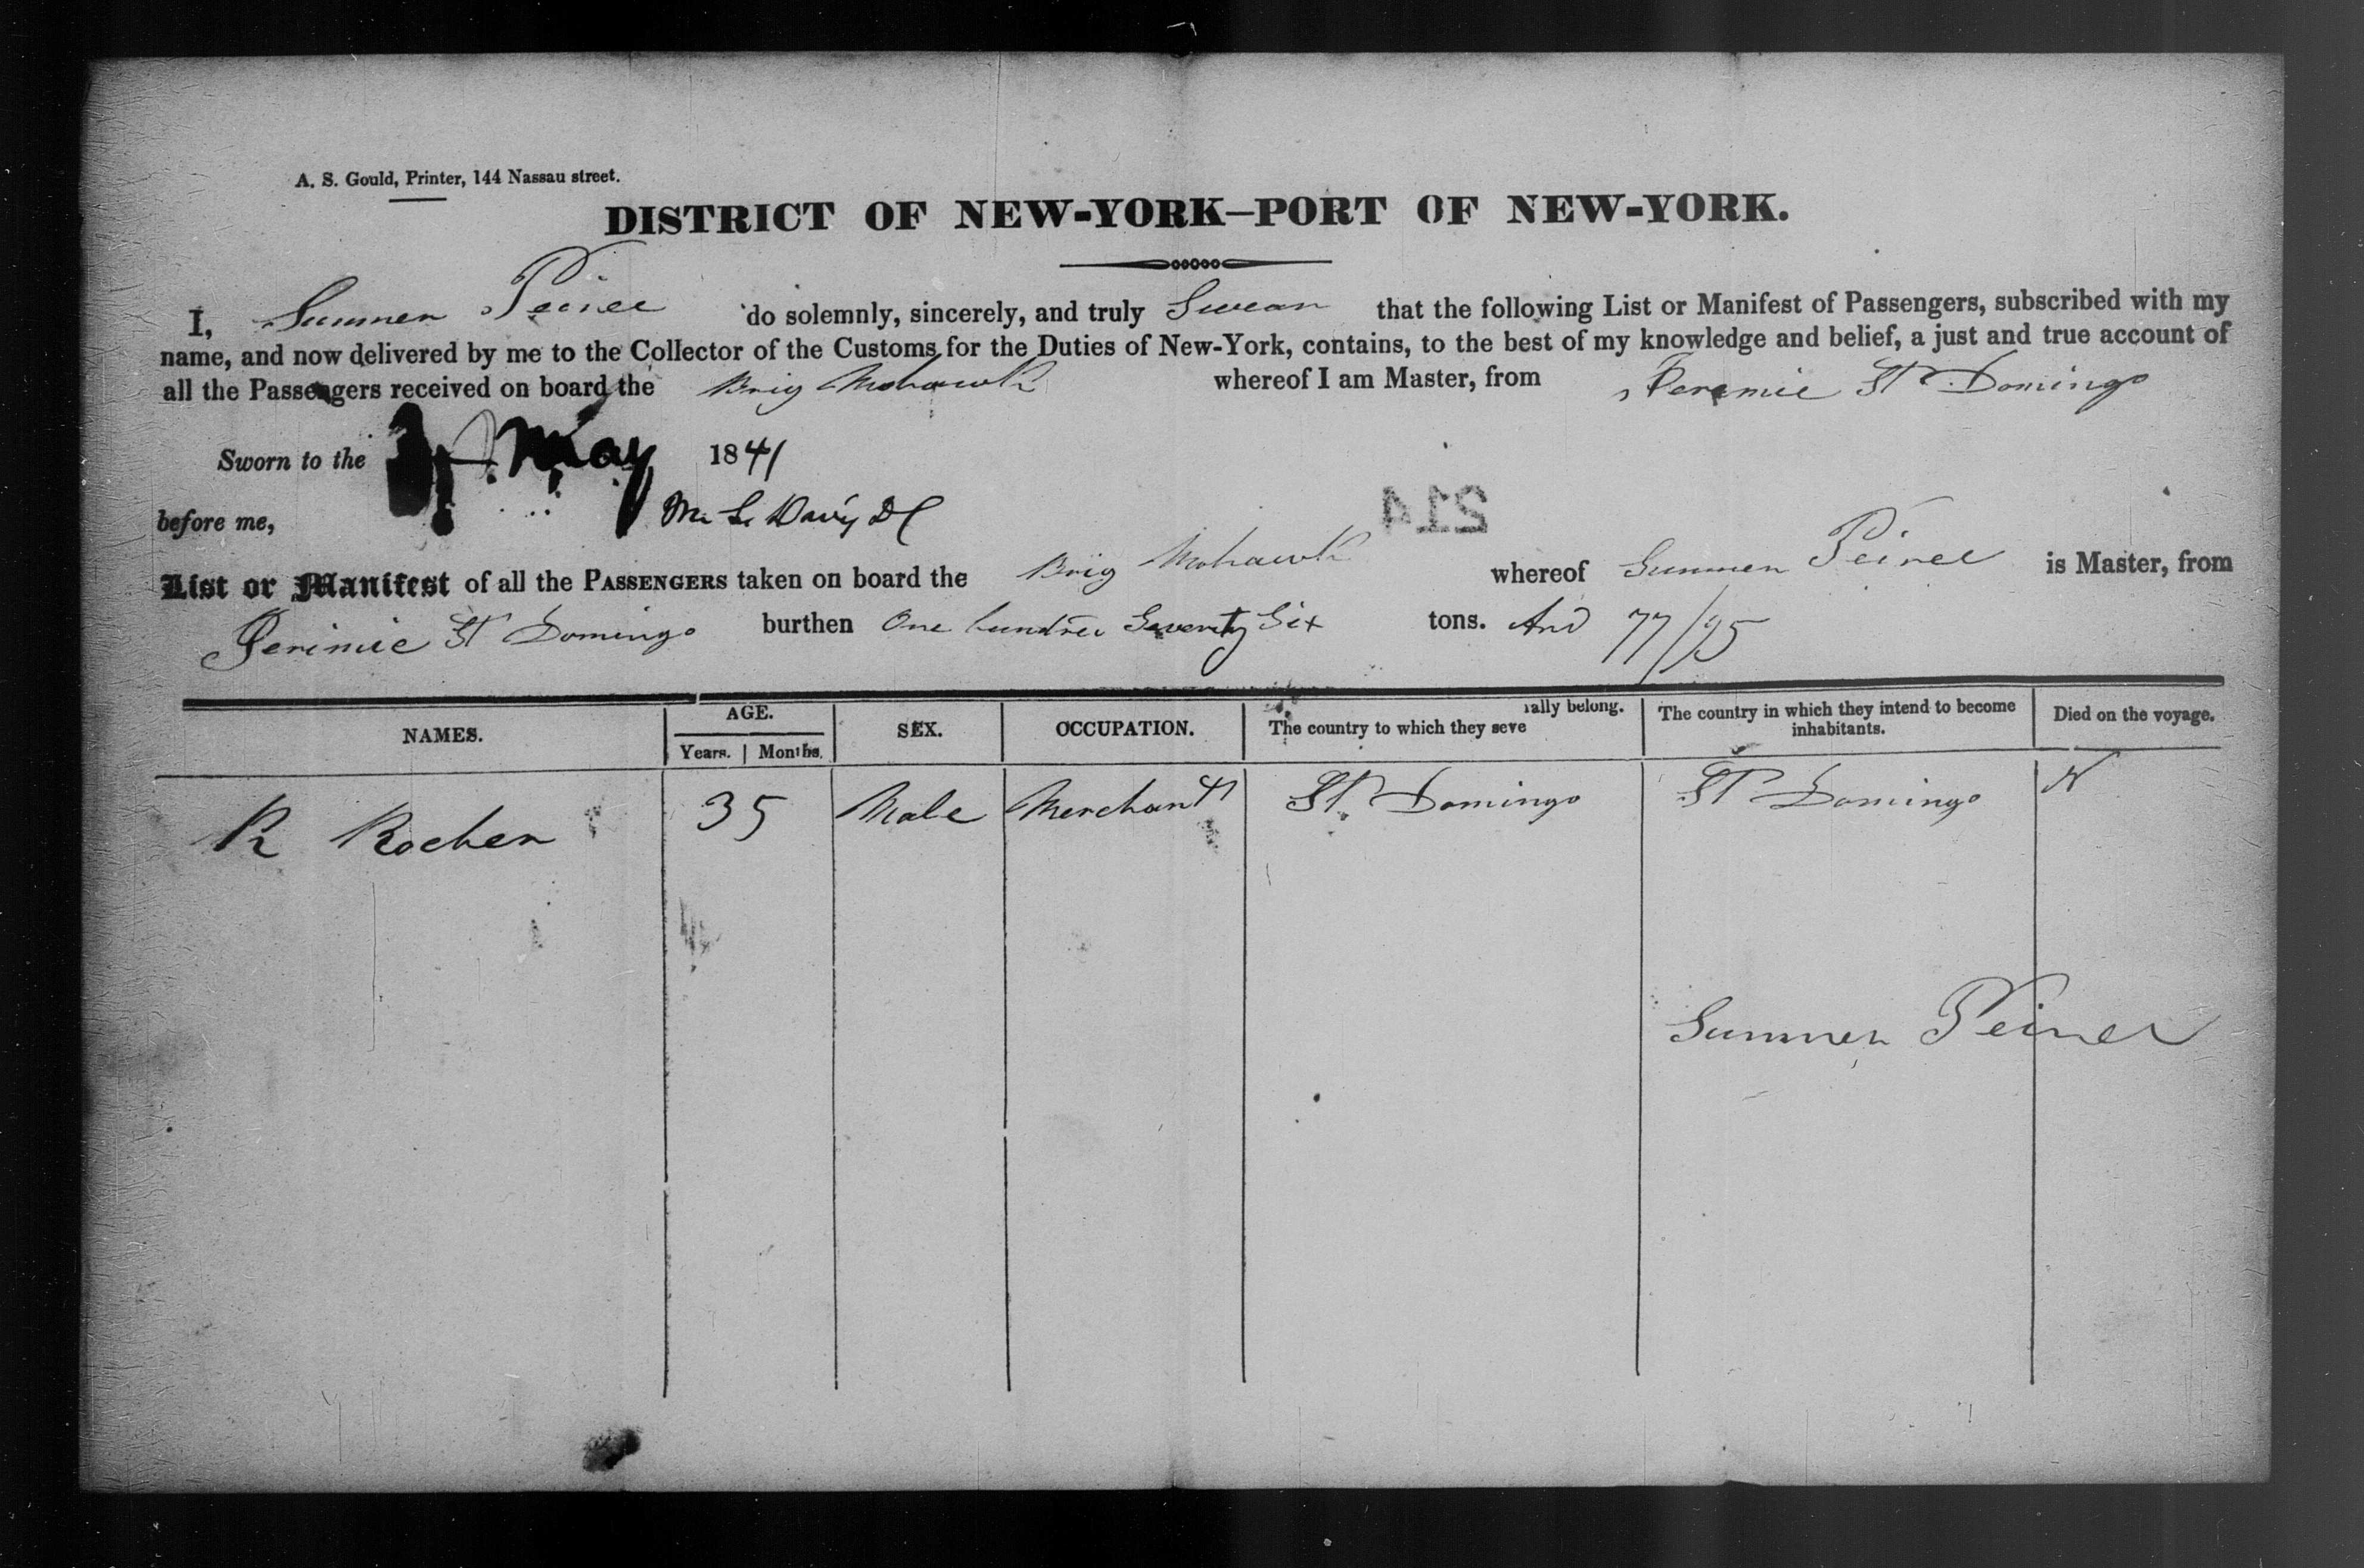 A. S. Gould, Printer, 144 Nassau street.
DISTRICT OF NEW-YORK—PORT OF NEW-YORK.
I, Sumner Peirce do solemnly, sincerely, and truly Swear that the following List or Manifest of Passengers, subscribed with my
name, and now delivered by me to the Collector of the Customs for the Duties of New-York, contains, to the best of my knowledge and belief, a just and true account of
all the Passengers received on board the Brig Mohawk whereof I am Master, from Jeremie St Domingo
Sworn to the May 1841
before me, Davis
214
List or Manifest of all the PASSENGERS taken on board the Brig Mohawk whereof Sumner Peirce is Master, from
Jerimie St Domingo burthen One hundred Seventy Six tons. And 77/95
NAMES. AGE. Years. Months. SEX. OCCUPATION. The country to which they severally belong. The country in which they intend to become inhabitants. Died on the voyage.
R Rocher 35 Male Merchant St. Domingo St Domingo N
Sumner Peirce